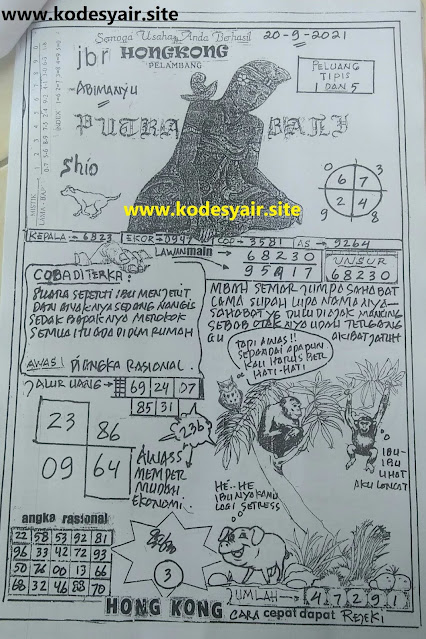 www.kodesyair.site
Semoga Usaha Anda Berhasil
20-9-2021
jbr HONGKONG
PELAMBANG
PELUANG
TIPIS
1 DAN 5
-ABIMANYU
PUTRA BALI
Shio
www.kodesyair.site
0
1
6 7
3
2 4
9
8
KEPALA = 6823 EKOR = 0947 COP = 3581 AS = 9264
LAWAN main
68230
95917
UNSUR
68230
COBA DITERKA:
SUARA SEPERTI IBU MENJERIT
DAN ANAKNYA SEDANG NANGIS
SEDAK BAPAKNYA MEROKOK
SEMUA ITU ADA DIDLM RUMAH
MBAH SEMAR JUMPA SAHABAT
LAMA SUDAH LUPA NAMANYA
SAHABAT YG DULU DIAJAK MANCING
SEBAB OTAKNYA UDAH TERGANGGU
AKIBAT JATUH
AWAS! DIANGKA RASIONAL.
JALUR UANG =
69 24 07
85 31
23 86
09 64
236
AWASS
MEMPER
MUDAH
EKONOMI
TAPI AWAS!!
SEPANDAI APAPUN
KAU HARUS BER
HATI-HATI
IBU-
IBU
LIHAT
AKU LONCAT
HE..HE
IBUNYA KAMU
LAGI SETRESS
angka rasional
22 58 53 92 81
96 33 42 72 93
50 76 00 13 66
68 32 46 88 70
3
JUMLAH
4 7 2 9 1
HONG KONG CARA cepat dapat REJEKI